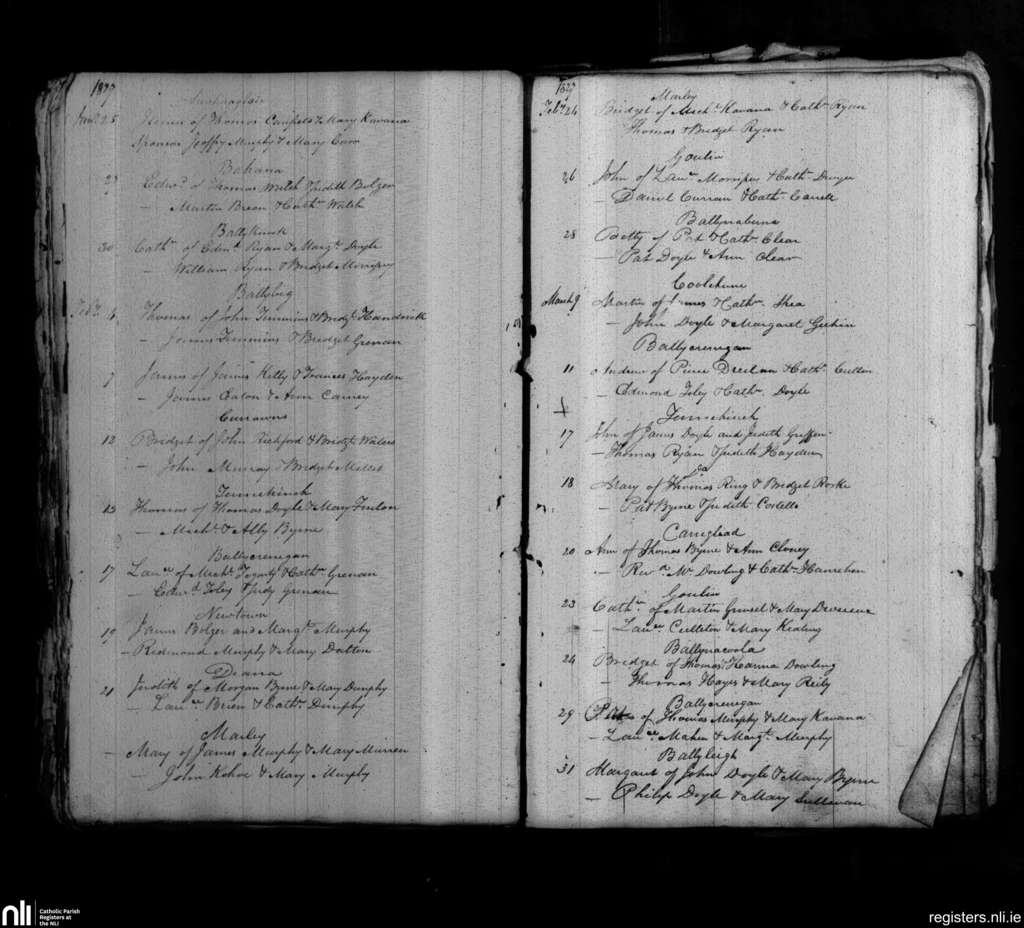 1827
Jany 25 of Thomas Campbel & Mary Kavana
Sponsors Jeoffry Murphy & Mary
Bahana
27 Edwd of Thomas Welsh & Judith Bolger
— Martin Breen & Cathn Welsh
Ballyknock
30 Cathn of Edmd Ryan & Margt Doyle
— William Ryan & Bridget Morrissy
Ballybeg
Feby Thomas of John Timmins & Bridgt Handrick
— James Timmins & Bridget Grenan
7 James of James Kelly & Frances Hayden
— James Eaton & Ann Camey
Curraun
12 Bridget of John Richford & Bridgt Waters
— John Murray & Bridget
Tinnehinch
13 Thomas of Thomas Doyle & Mary Finton
— Michl & Ally Byrne
Ballycrenegan
17 Lawce of Michl Fogarty & Cathn Grenan
— Edwd Foley & Judy Grenan
Newtown
19 James Bolger and Margt Murphy
— Redmond Murphy & Mary Dalton
Drana
21 Judith of Morgan Byrne & Mary Dunphy
— Lawce Brien & Cathn Dunphy
Marley
— Mary of James Murphy & Mary Murren
— John Kehoe & Mary Murphy
1827
Marley
Feby 24 Bridget of Michl Kavana & Cathn Ryan
Thomas & Bridget Ryan
Goulin
26 John of Lawce Morrissy & Cathn Dwyer
— Daniel Curran & Cathn
Ballynaberne
28 Betty of Pat & Cathn Clear
— Pat Doyle & Ann Clear
Coolehune
March 9 Martin of James & Cathn Shea
— John Doyle & Margaret
Ballycrenegan
11 Andrew of Pierce & Cathn Cullen
— Edmond Foley & Cathn Doyle
Tinnehinch
17 John of James Doyle and Judith Griffen
— Thomas Ryan & Judith Hayden
Do
18 Mary of Thomas Ring & Bridget Rorke
— Pat Byrne & Judith Costello
20 Ann of Thomas Byrne & Ann Cloney
— Revd Mr Dowling & Cathn Hanrahan
Goulin
23 Cathn of Martin & Mary Devereux
— Lawce Culleton & Mary Keating
Ballynacoola
24 Bridget of Thomas & Hanna Dowling
— Thomas Hayes & Mary Reily
Ballycrenegan
29 of Thomas Murphy & Mary Kavana
— Lawce Maher & Margt Murphy
Ballyleigh
31 Margaret of John Doyle & Mary Byrne
— Philip Doyle & Mary Sullivan
nli
Catholic Parish
Registers at
the NLI
registers.nli.ie